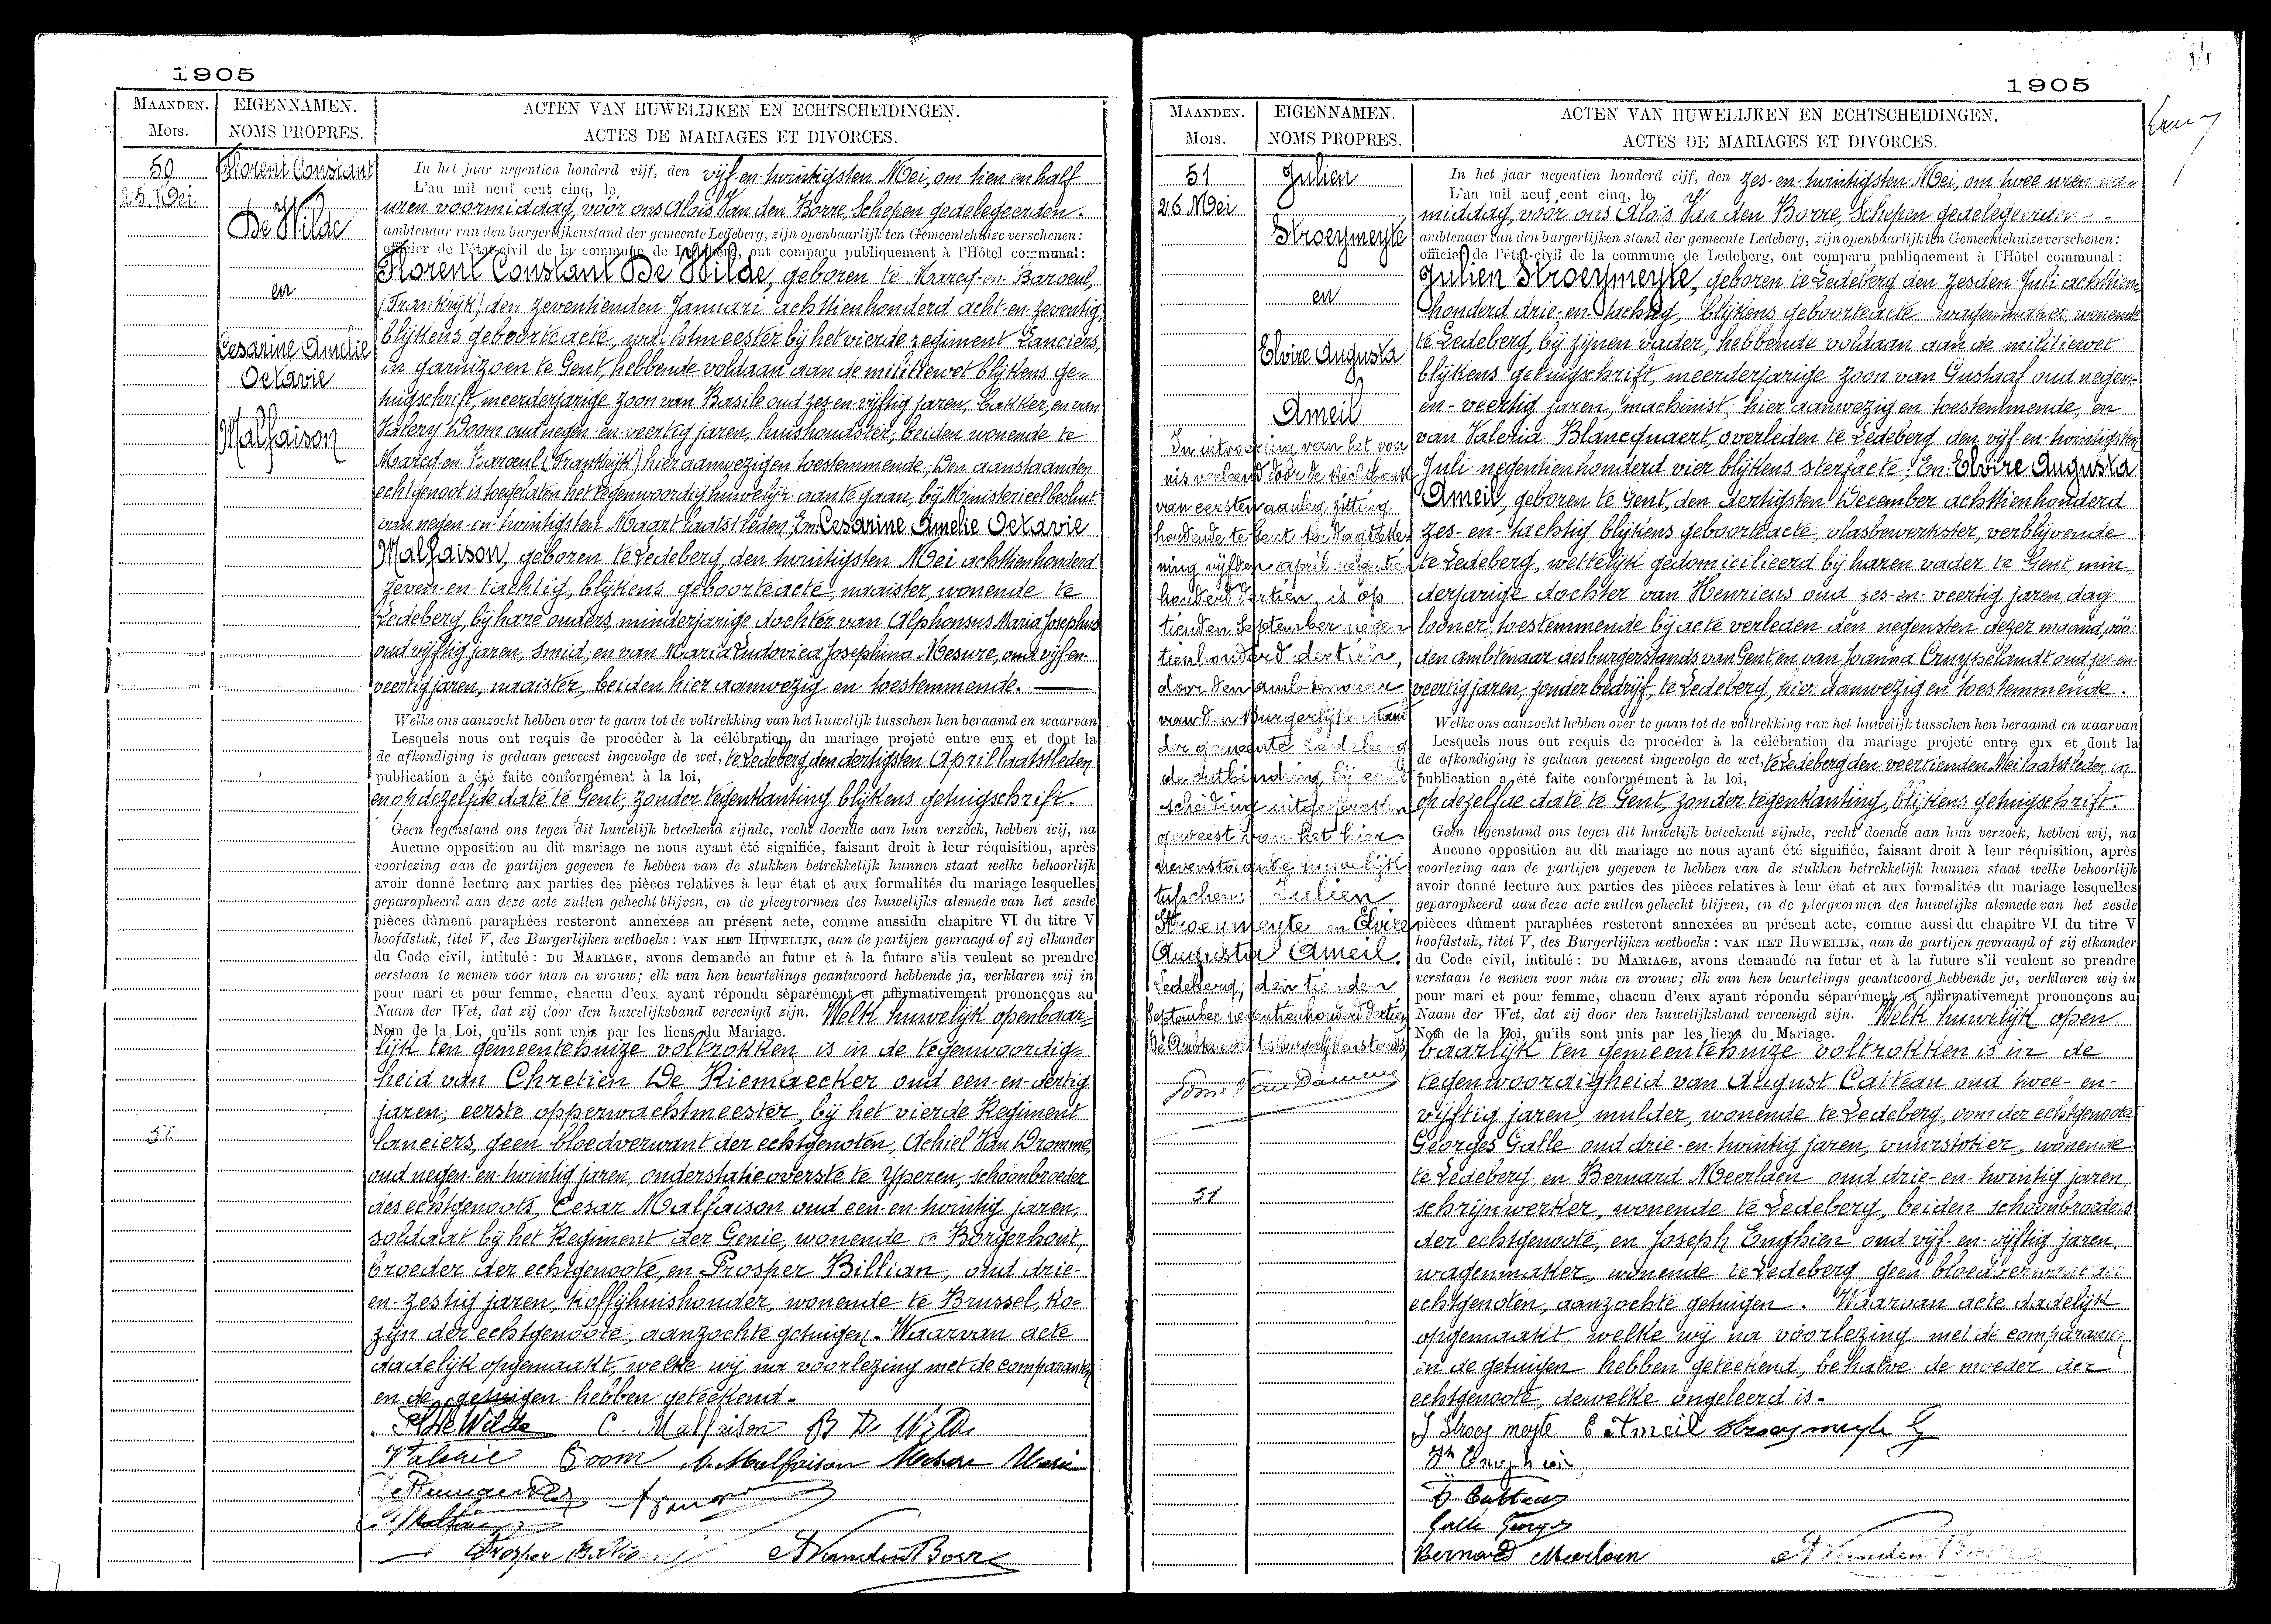 1905
MAANDEN. EIGENNAMEN. ACTEN VAN HUWELIJKEN EN ECHTSCHEIDINGEN.
Mois. NOMS PROPRES. ACTES DE MARIAGES ET DIVORCES.
50
25 Mei
Florent Constant
De Wilde
en
Cesarine Amelie
Octavie
Malfaison
In het jaar negentien honderd vijf, den vijf-en-twintigsten Mei, om tien en half
L'an mil neuf cent cinq, le
uren voormiddag, vóór ons Aloïs Van den Borre, Schepen gedelegeerden
ambtenaar van den burgerlijkenstand der gemeente Ledeberg, zijn openbaarlijk ten Gemeentehuize verschenen:
officier de l'état-civil de la commune de Ledeberg, ont comparu publiquement à l'Hôtel communal:
Florent Constant De Wilde, geboren te Marcq-en-Baroeul,
(Frankrijk) den zeventienden Januari achttienhonderd acht-en-zeventig,
blijkens geboorteacte, wachtmeester bij het vierde regiment Lanciers,
in garnizoen te Gent, hebbende voldaan aan de militiewet blijkens ge-
tuigschrift, meerderjarige zoon van Basile oud zes-en-vijftig jaren, bakker, en van
Valery Doom oud negen-en-veertig jaren, huishoudster, beiden wonende te
Marcq-en-Baroeul (Frankrijk) hier aanwezig en toestemmende; Den aanstaanden
echtgenoot is toegelaten het tegenwoordig huwelijk aan te gaan, bij Ministerieel besluit
van negen-en-twintigsten Maart laatstleden; En: Cesarine Amelie Octavie
Malfaison, geboren te Ledeberg, den twintigsten Mei achttienhonderd
zeven-en-tachtig, blijkens geboorteacte, naaister, wonende te
Ledeberg, bij hare ouders, minderjarige dochter van Alphonsus Maria Josephus
oud vijftig jaren, smid, en van Maria Ludovica Josephina Mesure, oud vijf-en-
veertig jaren, naaister, beiden hier aanwezig en toestemmende.
Welke ons aanzocht hebben over te gaan tot de voltrekking van het huwelijk tusschen hen beraamd en waarvan
Lesquels nous ont requis de procéder à la célébration du mariage projeté entre eux et dont la
de afkondiging is gedaan geweest ingevolge de wet, te Ledeberg, den dertigsten April laatstleden
publication a été faite conformément à la loi,
en op dezelfde date te Gent, zonder tegenkanting blijkens getuigschrift.
Geen tegenstand ons tegen dit huwelijk beteekend zijnde, recht doende aan hun verzoek, hebben wij, na
Aucune opposition au dit mariage ne nous ayant été signifiée, faisant droit à leur réquisition, après
voorlezing aan de partijen gegeven te hebben van de stukken betrekkelijk hunnen staat welke behoorlijk
avoir donné lecture aux parties des pièces relatives à leur état et aux formalités du mariage lesquelles
geparapheerd aan deze acte zullen gehecht blijven, en de pleegvormen des huwelijks alsmede van het zesde
pièces dûment paraphées resteront annexées au présent acte, comme aussidu chapitre VI du titre V
hoofdstuk, titel V, des Burgerlijken wetboeks: VAN HET HUWELIJK, aan de partijen gevraagd of zij elkander
du Code civil, intitulé: DU MARIAGE, avons demandé au futur et à la future s'ils veulent se prendre
verstaan te nemen voor man en vrouw; elk van hen beurtelings geantwoord hebbende ja, verklaren wij in
pour mari et pour femme, chacun d'eux ayant répondu séparément et affirmativement prononçons au
Naam der Wet, dat zij door den huwelijksband vereenigd zijn. Welk huwelijk openbaar-
Nom de la Loi, qu'ils sont unis par les liens du Mariage.
lijk ten gemeentehuize voltrokken is in de tegenwoordig-
heid van Chretien De Riemaecker oud een-en-dertig
jaren, eerste opperwachtmeester bij het vierde Regiment
lanciers, geen bloedverwant der echtgenoten, Achiel Van Dromme,
oud negen-en-twintig jaren, onderstatieoverste te Yperen, schoonbroeder
des echtgenoots, Cesar Malfaison oud een-en-twintig jaren,
soldaat bij het Regiment der Genie, wonende te Borgerhout,
broeder der echtgenoote, en Prosper Billian, oud drie-
en-zestig jaren, koffijhuishouder, wonende te Brussel, ko-
zijn der echtgenoote, aanzochte getuigen. Waarvan acte
dadelijk opgemaakt, welke wij na voorlezing met de comparanten
en de getuigen hebben geteekend.
De Wilde C. Malfaison B De Wilde
Valerie Doom A. Malfaison Mesure Marie
Prosper A Vanden Borre
1905
MAANDEN. EIGENNAMEN. ACTEN VAN HUWELIJKEN EN ECHTSCHEIDINGEN.
Mois. NOMS PROPRES. ACTES DE MARIAGES ET DIVORCES.
51
26 Mei
Julien
Stroeymeyte
en
Elvire Augusta
Ameil
In uitvoering van het von
nis verleend door de Rechtbank
van eersten aanleg zitting
houdende te Gent ter dagteke-
ning vijfden april negentien
honderd dertien, is op
tienden September negen
tienhonderd dertien,
door den ambtenaar
van den Burgerlijke stand
der gemeente Ledeberg
de ontbinding bij echt
scheiding uitgesproken
geweest van het hier
nevenstaande huwelijk
tusschen: Julien
Stroeymeyte en Elvire
Augusta Ameil.
Ledeberg, den tienden
September negentienhonderd dertien
De Ambtenaar des burgerlijkenstands,
Van Damme
51
In het jaar negentien honderd vijf, den zes-en-twintigsten Mei, om twee uren na-
L'an mil neuf cent cinq, le
middag, vóór ons Aloïs Van den Borre, Schepen gedelegeerden
ambtenaar van den burgerlijken stand der gemeente Ledeberg, zijn openbaarlijk ten Gemeentehuize verschenen:
officier de l'état-civil de la commune de Ledeberg, ont comparu publiquement à l'Hôtel communal:
Julien Stroeymeyte, geboren te Ledeberg den zesden Juli achttien-
honderd drie-en-tachtig, blijkens geboorteacte, wagenmaker, wonende
te Ledeberg, bij zijnen vader, hebbende voldaan aan de militiewet
blijkens getuigschrift, meerderjarige zoon van Gustaaf oud negen-
en-veertig jaren, machinist, hier aanwezig en toestemmende, en
van Valeria Blancquaert overleden te Ledeberg den vijf-en-twintigsten
Juli negentienhonderd vier blijkens sterfacte; En: Elvire Augusta
Ameil, geboren te Gent, den dertigsten December achttienhonderd
zes-en-tachtig blijkens geboorteacte, vlasbewerkster, verblijvende
te Ledeberg, wettelijk gedomicilieerd bij haren vader te Gent min-
derjarige dochter van Henricus oud zes-en-veertig jaren dag
looner, toestemmende bij acte verleden den negensten dezer maand, vóó
den ambtenaar des burgerstands van Gent, en van Joanna Cruypelandt oud zes-en-
veertig jaren, zonder bedrijf, te Ledeberg, hier aanwezig en toestemmende.
Welke ons aanzocht hebben over te gaan tot de voltrekking van het huwelijk tusschen hen beraamd en waarvan
Lesquels nous ont requis de procéder à la célébration du mariage projeté entre eux et dont la
de afkondiging is gedaan geweest ingevolge de wet, te Ledeberg den veertienden Mei laatstleden en
publication a été faite conformément à la loi,
op dezelfde date te Gent, zonder tegenkanting, blijkens getuigschrift.
Geen tegenstand ons tegen dit huwelijk beteekend zijnde, recht doende aan hun verzoek, hebben wij, na
Aucune opposition au dit mariage ne nous ayant été signifiée, faisant droit à leur réquisition, après
voorlezing aan de partijen gegeven te hebben van de stukken betrekkelijk hunnen staat welke behoorlijk
avoir donné lecture aux parties des pièces relatives à leur état et aux formalités du mariage lesquelles
geparapheerd aan deze acte zullen gehecht blijven, en de pleegvormen des huwelijks alsmede van het zesde
pièces dûment paraphées resteront annexées au présent acte, comme aussi du chapitre VI du titre V
hoofdstuk, titel V, des Burgerlijken wetboeks: VAN HET HUWELIJK, aan de partijen gevraagd of zij elkander
du Code civil, intitulé: DU MARIAGE, avons demandé au futur et à la future s'il veulent se prendre
verstaan te nemen voor man en vrouw; elk van hen beurtelings geantwoord hebbende ja, verklaren wij in
pour mari et pour femme, chacun d'eux ayant répondu séparément et affirmativement prononçons au
Naam der Wet, dat zij door den huwelijksband vereenigd zijn. Welk huwelijk open
Nom de la Loi, qu'ils sont unis par les liens du Mariage.
baarlijk ten gemeentehuize voltrokken is in de
tegenwoordigheid van August Catteau oud twee-en-
vijftig jaren, mulder, wonende te Ledeberg, oom der echtgenoote
Georges Galle oud drie-en-twintig jaren, vuurstoker, wonende
te Ledeberg en Bernard Meerlaen oud drie-en-twintig jaren,
schrijnwerker, wonende te Ledeberg, beiden schoonbroeders
der echtgenoote, en Joseph Enghien oud vijf-en-vijftig jaren,
wagenmaker, wonende te Ledeberg, geen bloedverwant der
echtgenoten, aanzochte getuigen. Waarvan acte dadelijk
opgemaakt, welke wij na voorlezing met de comparanten
en de getuigen hebben geteekend, behalve de moeder der
echtgenoote, dewelke ongeleerd is.
J Stroeymeyte E Ameil Stroeymeyte G
Jh Enghien
Catteau
Galle Georges
Bernard Meerlaen A Vanden Borre